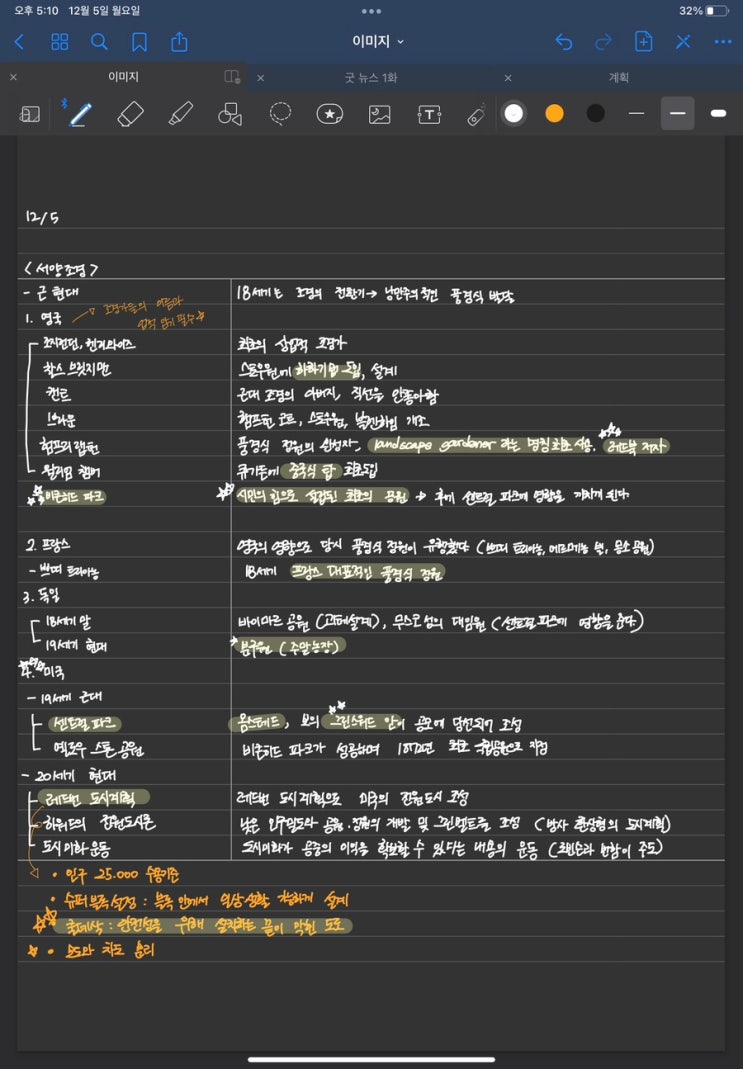 오후 5:10 12월 5일 월요일
32%
이미지
이미지
굿 뉴스 1화
계획
12/5
<서양조경>
- 근현대 18세기는 조경의 전환기→ 낭만주의적인 풍경식 발달
1. 영국 → 조경가들의 이름과
업적 암기 필수☆
조지런던, 헨리와이즈 최초의 상업적 조경가
찰스 브릿지맨 스토우원에 하하기법 도입, 설계
켄트 근대 조경의 아버지, 직선을 안좋아함
브라운 햄프턴 코트, 스토우원, 블렌하임 개조
험프리 랩턴 풍경식 정원의 완성자, landscape gardener 라는 명칭 최초 사용. 레드북 저자
윌리엄 챔버 큐가든에 중국식 탑 최초도입
비큰히드 파크 시민의 힘으로 설립된 최초의 공원 → 후에 센트럴 파크에 영향을 끼치게 된다
2. 프랑스 영국의 영향으로 당시 풍경식 정원이 유행했다 (쁘띠 트리아농, 에르메농빌, 몽소공원)
- 쁘띠 트리아농 18세기 프랑스 대표적인 풍경식 정원
3. 독일
18세기 말 바이마르 공원 (괴테설계), 무스코성의 대임원 (센트럴파크에 영향을 준다)
19세기 현대 분구원 (주말농장)
4. 미국
- 19세기 근대
센트럴 파크 옴스테드, 보의 그린스워드 안이 공모에 당선되어 조성
옐로우 스톤 공원 비큰히드 파크가 성공하며 1872년 최초 국립공원으로 지정
- 20세기 현대
레드번 도시계획 레드번 도시계획으로 미국의 전원도시 조성
하워드의 전원도시론 낮은 인구밀도와 공원·정원의 개발 및 그린벨트를 조성 (방사 환상형의 도시계획)
도시미화운동 도시미화가 공중의 이익을 확보할 수 있다는 내용의 운동 (로빈슨과 번함이 주도)
• 인구 25.000 수용기준
• 슈퍼블록 설정 : 블록 안에서 일상생활 가능하게 설계
쿨데삭 : 안전성을 위해 설치하는 끝이 막힌 도로
• 보도와 차도 분리